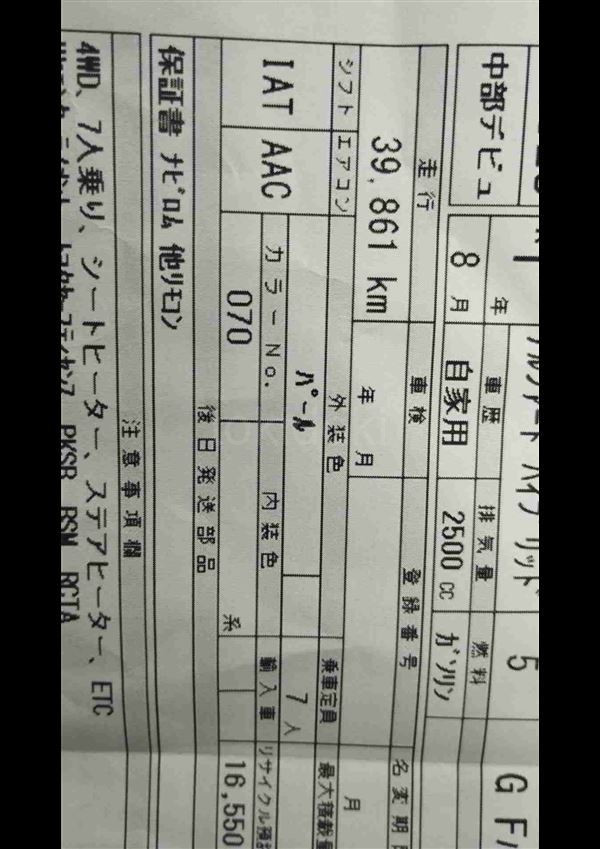 中部デビュ
年 車歴 排気量 燃料
8 月 自家用 2500 cc ガソリン
アルファード ハイブリッド 5
G F
走行 車検 登録番号 名変期
39,861 km 年 月 月
シフト エアコン 外装色 乗車定員 最大積載量
IAT AAC パール 7 人
カラーNo. 内装色 輸入車 リサイクル預
070 系 16,550
後日発送部品
保証書 ナビロム 他リモコン
注意事項欄
4WD、7人乗り、シートヒーター、ステアヒーター、ETC
PKSB BSM RCTA